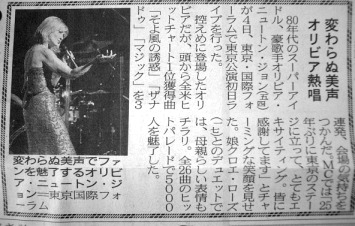 変わらぬ美声
オリビア熱唱
80年代のスーパーアイ
ドル、豪歌手オリビア・
ニュートン・ジョン(五四)
が4日、東京・国際フォ
ーラムで東京公演初日ラ
イブを行った。
控えめに登場したオリ
ビアだが、頭から全米ヒ
ットチャート1位獲得曲
「そよ風の誘惑」「ザナ
ドゥ」「マジック」を3
連発、会場の気持ちを
つかんだ。MCでは「25
年ぶりに東京のステー
ジに立って、とてもエ
キサイティング。皆に
感謝してます」とチャ
ーミングな笑顔を見せ
た。娘クロエ・ローズ
とのデュエットで
は、母親らしい表情も
チラリ。全26曲のヒッ
トパレードで5000
人を魅了した。
変わらぬ美声でファ
ンを魅了するオリビ
ア・ニュートン・ジ
ョン=東京国際フォ
ーラム